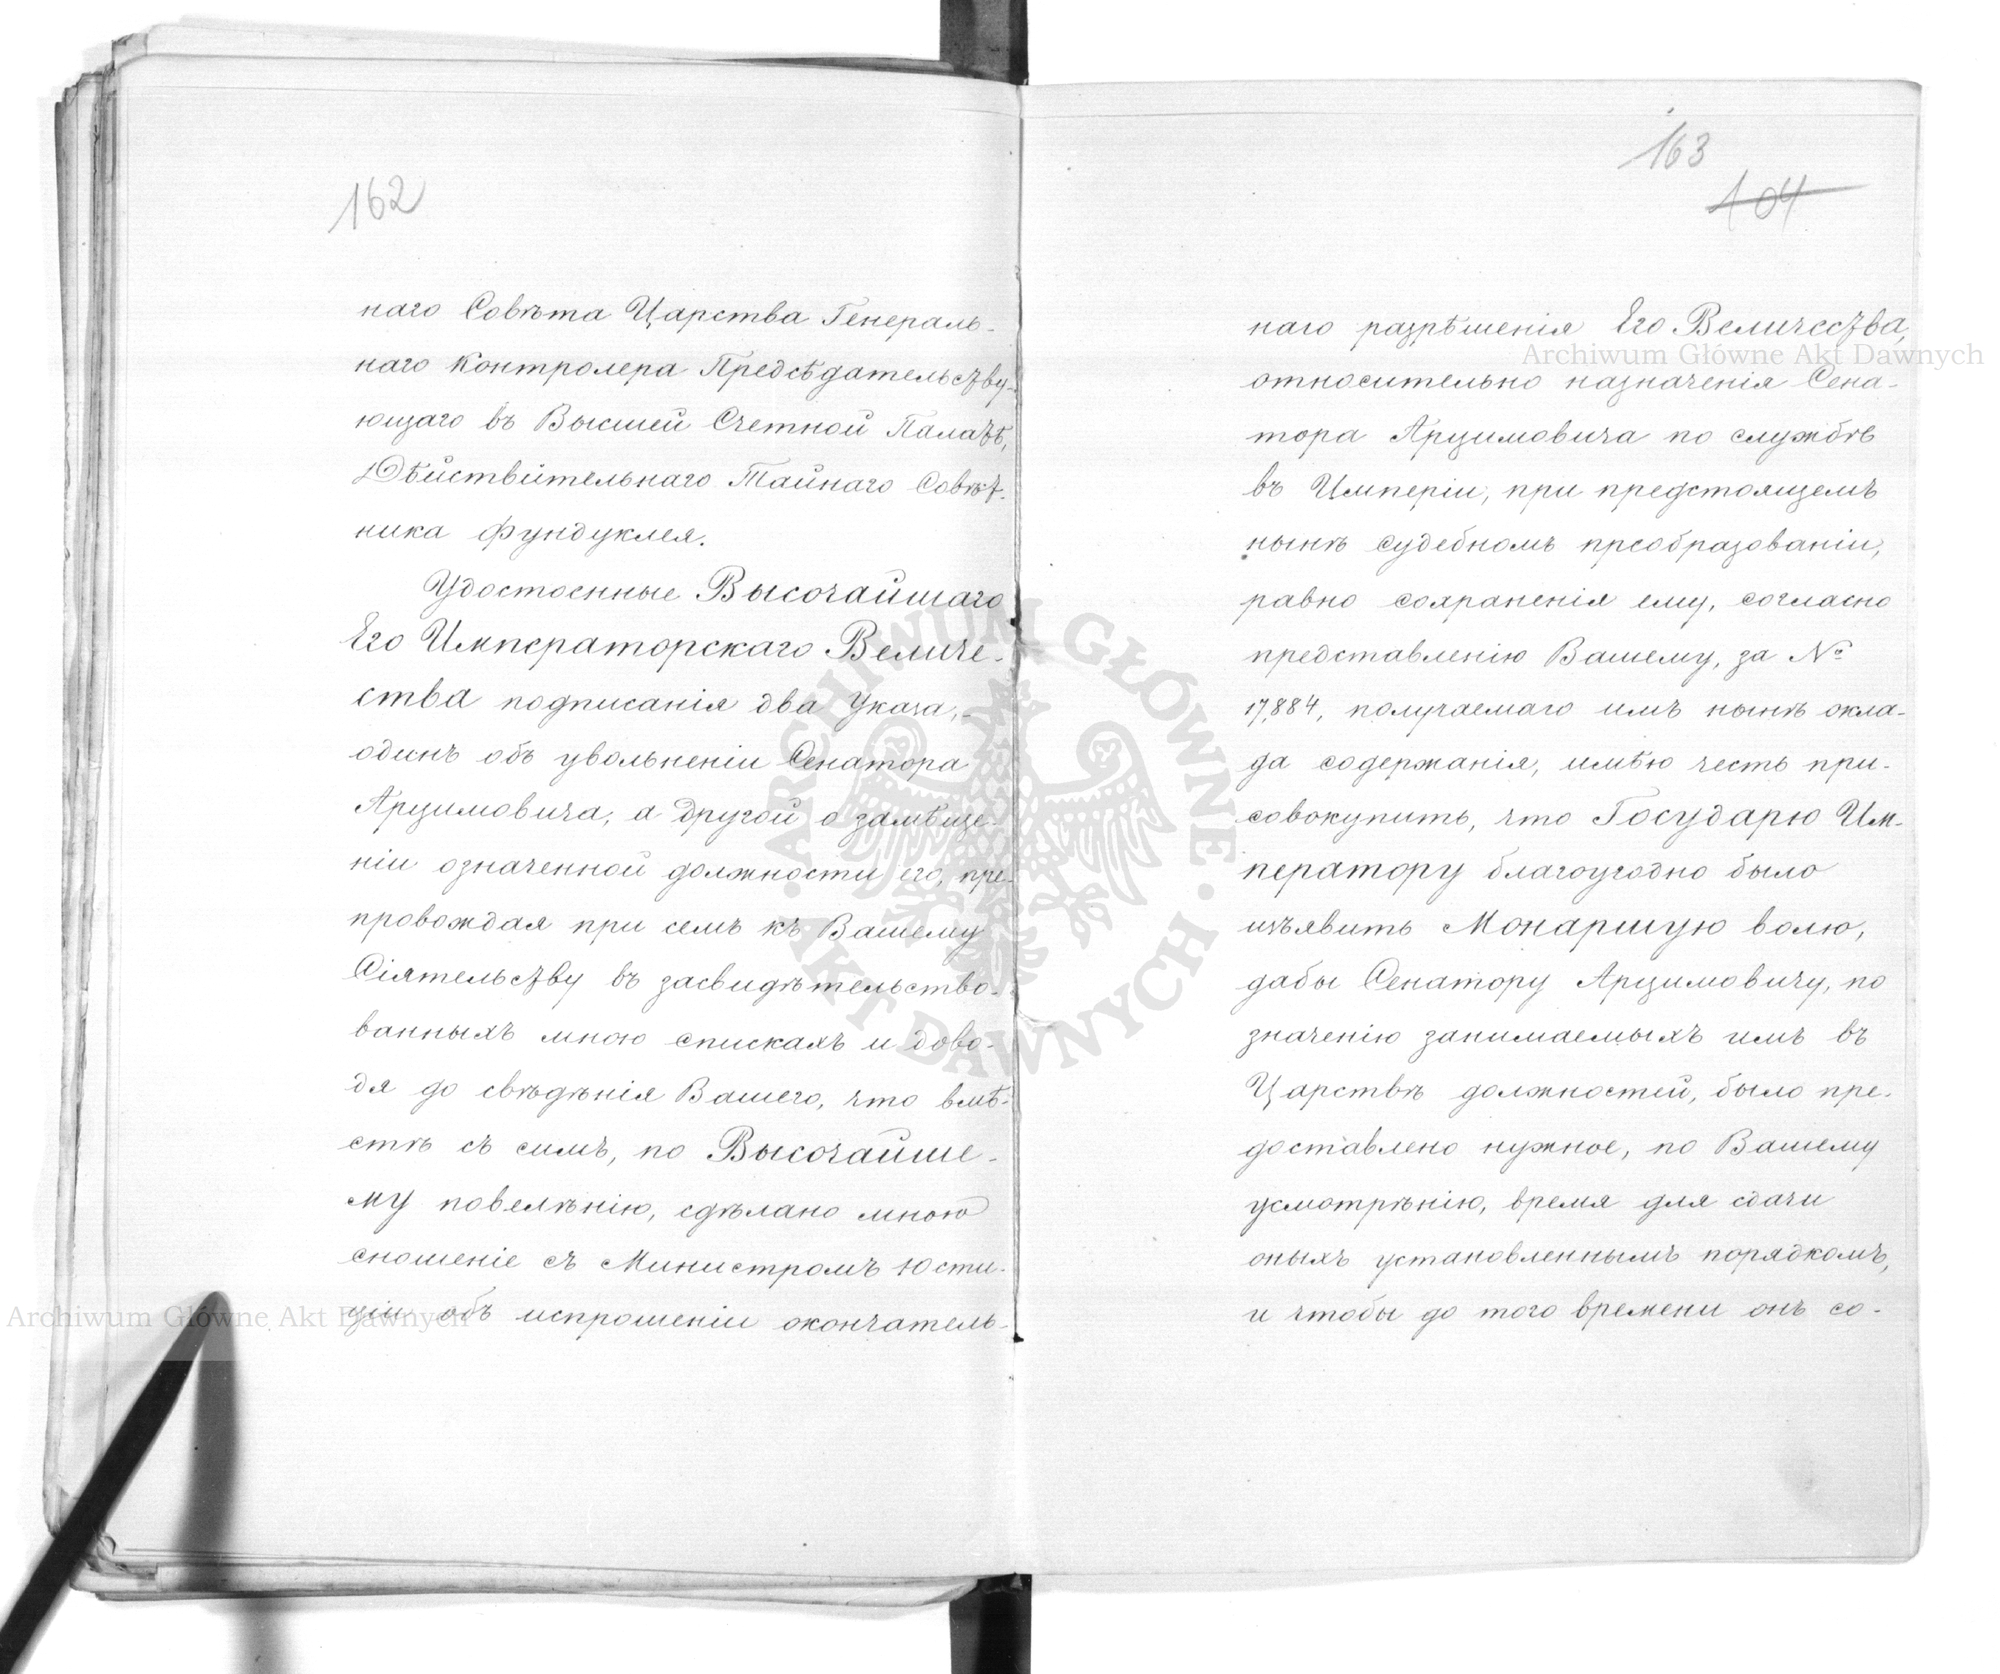 162
наго Совѣта Царства Генераль-
наго Контролера Предсѣдательству-
ющаго въ Высшей Счетной Палатѣ,
Дѣйствительнаго Тайнаго Совѣт-
ника Фундуклея.
Удостоенные Высочайшаго
Его Императорскаго Величе-
ства подписанія два Указа,-
одинъ объ увольненіи Сенатора
Арцимовича, а другой о замѣще-
ніи означенной должности его, пре-
провождая при семъ къ Вашему
Сіятельству въ засвидѣтельство-
ванныхъ мною спискахъ и дово-
дя до свѣдѣнія Вашего, что вмѣ-
стѣ съ симъ, по Высочайше-
му повелѣнію, сдѣлано мною
сношеніе съ Министромъ Юсти-
ціи объ испрошеніи окончатель-
163
104
наго разрѣшенія Его Величества,
относительно назначенія Сена-
тора Арцимовича по службѣ
въ Имперіи, при предстоящемъ
нынѣ судебномъ преобразованіи,
равно сохраненія ему, согласно
представленію Вашему, за №
17,884, получаемаго имъ нынѣ окла-
да содержанія, имѣю честь при-
совокупить, что Государю Им-
ператору благоугодно было
изъявить Монаршую волю,
дабы Сенатору Арцимовичу, по
значенію занимаемыхъ имъ въ
Царствѣ должностей, было пре-
доставлено нужное, по Вашему
усмотрѣнію, время для сдачи
оныхъ установленнымъ порядкомъ,
и чтобы до того времени онъ со-
Archiwum Główne Akt Dawnych
Archiwum Główne Akt Dawnych
ARCHIWUM GŁÓWNE AKT DAWNYCH